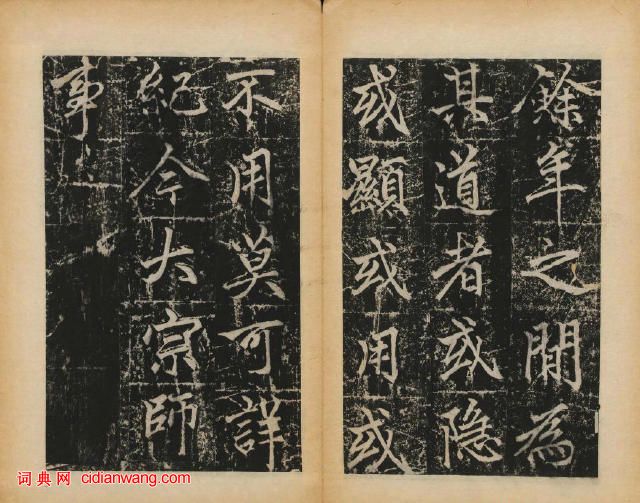 餘年之間為
其道者或隐
或顯或用或
不用莫可詳
紀今大宗師
事
词典网 cidianwang.com